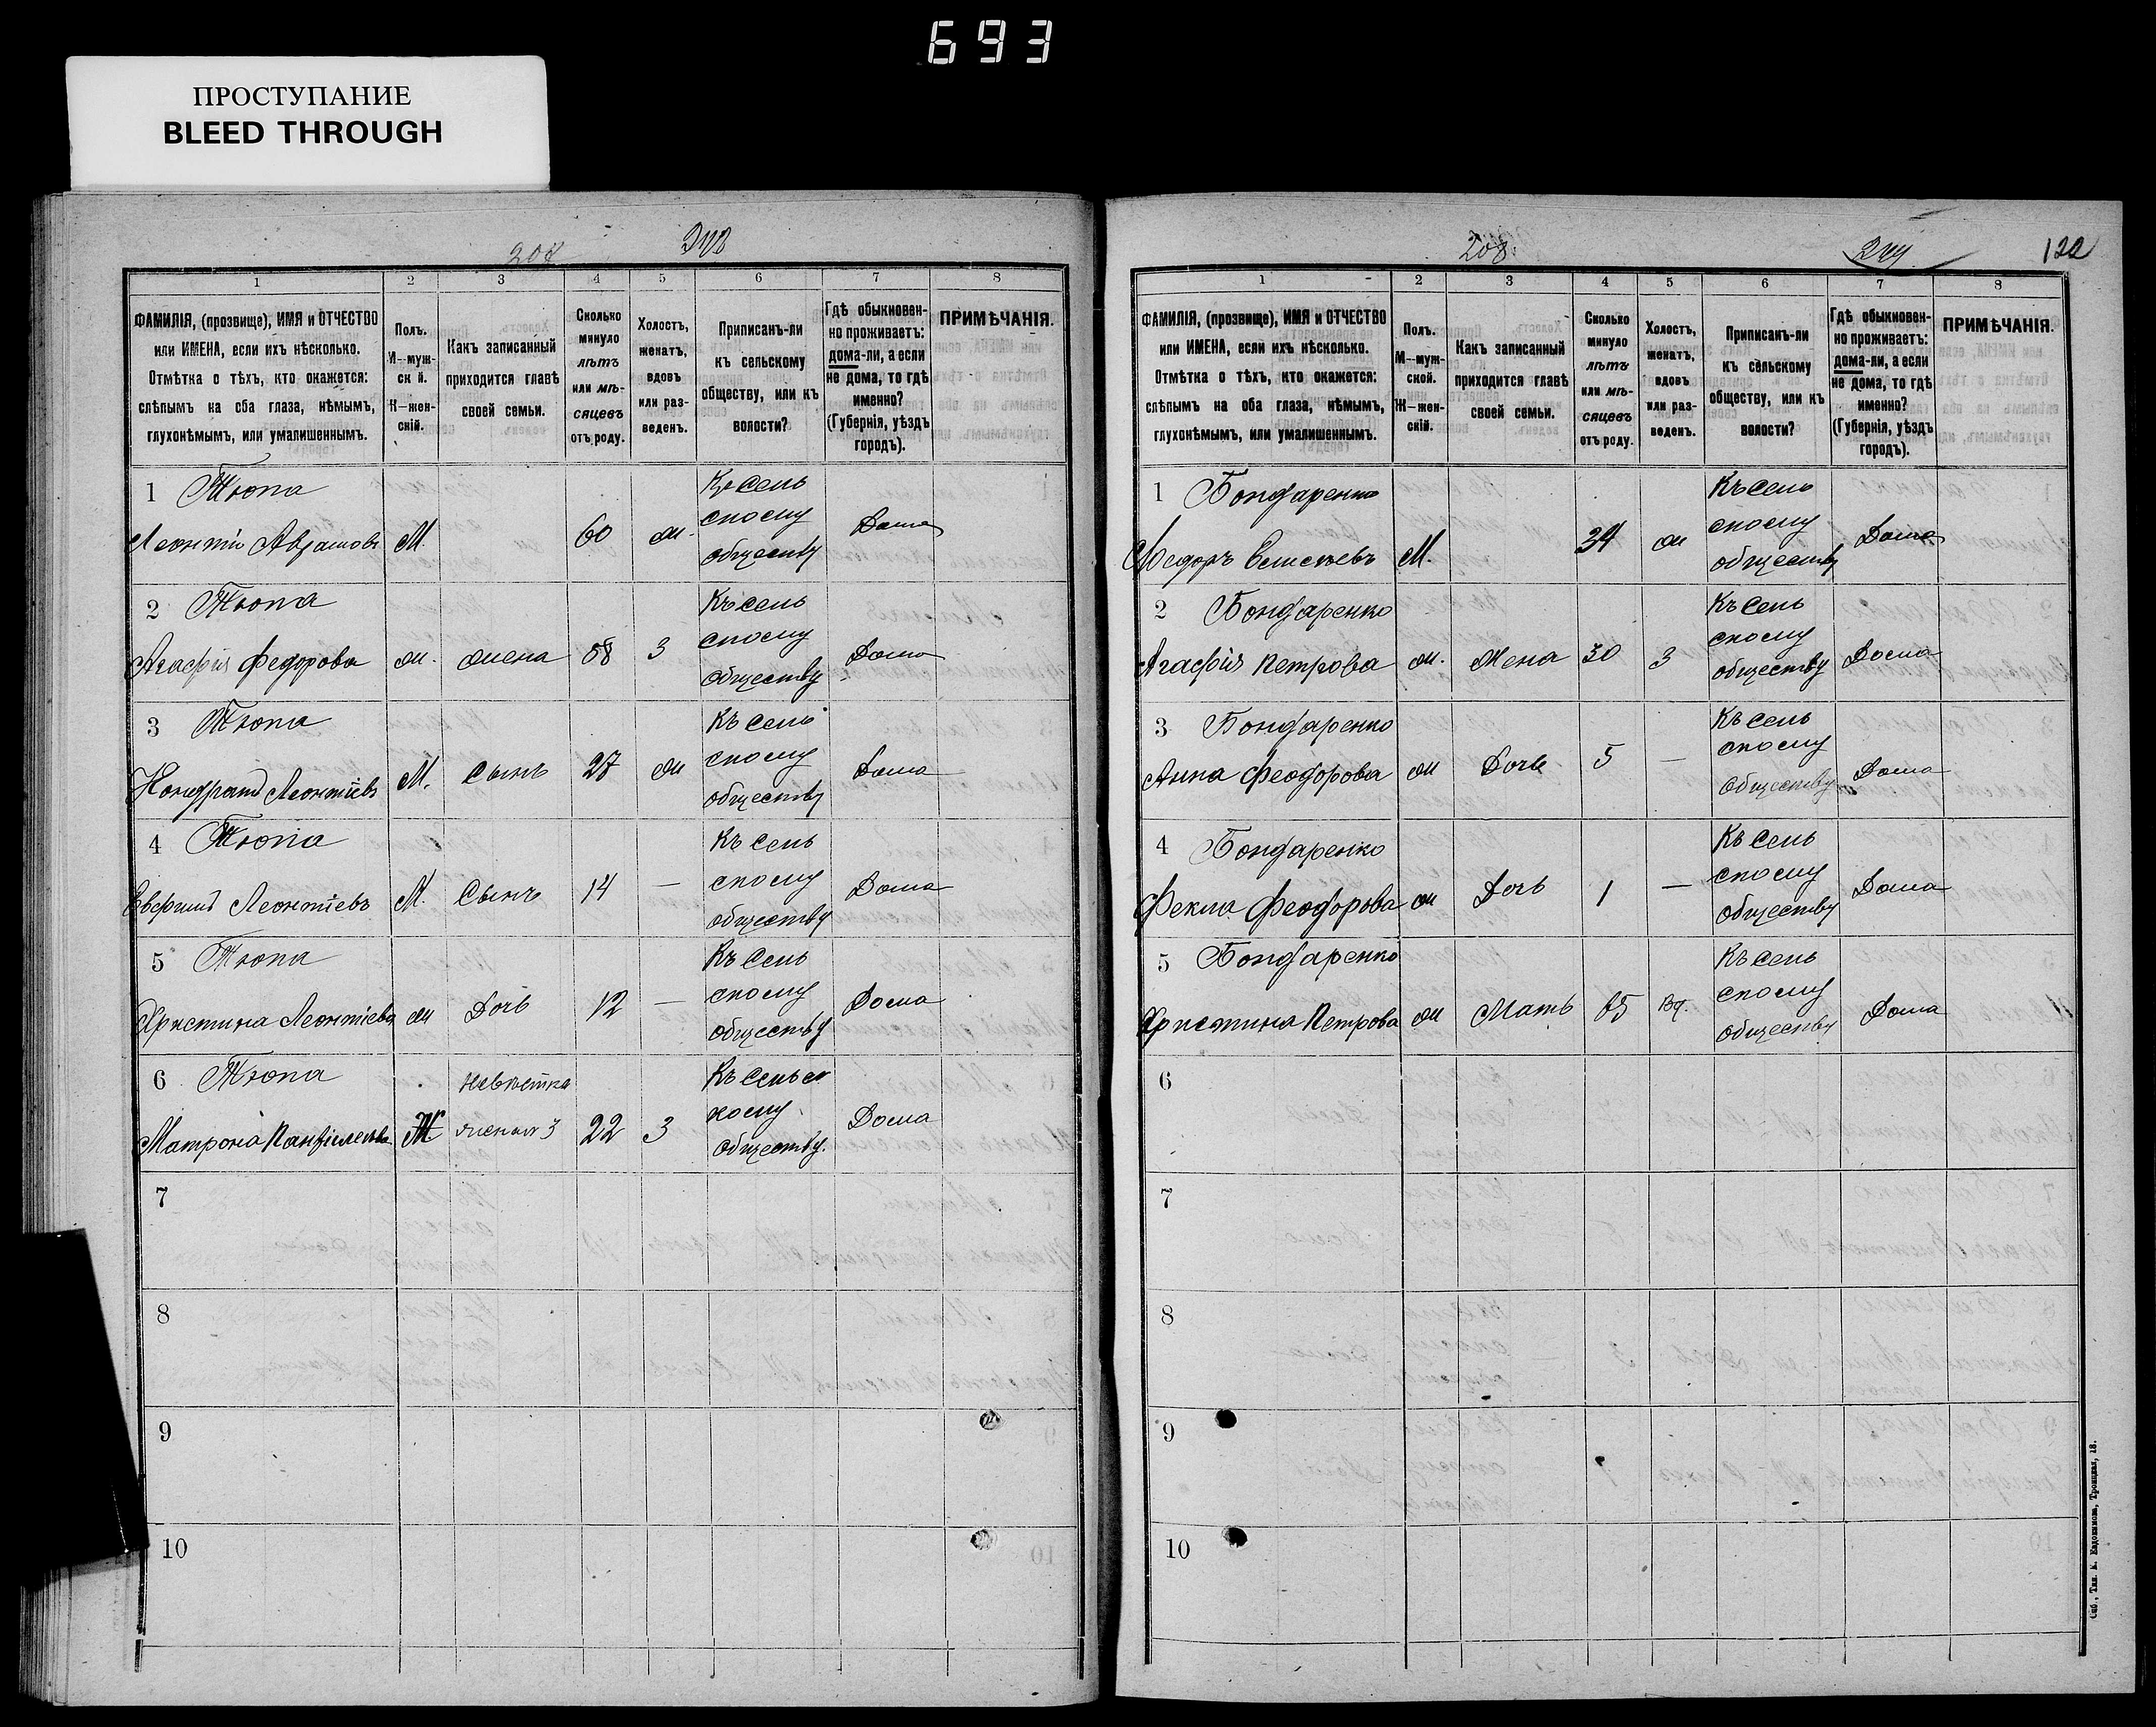 693
ПРОСТУПАНИЕ
BLEED THROUGH
207
1 2 3 4 5 6 7 8
ФАМИЛІЯ, (прозвище), ИМЯ и ОТЧЕСТВО или ИМЕНА, если ихъ нѣсколько. Отмѣтка о тѣхъ, кто окажется: слѣпымъ на оба глаза, нѣмымъ, глухонѣмымъ, или умалишеннымъ.
Полъ. М—мужск й. Ж—женскій.
Какъ записанный приходится главѣ своей семьи.
Сколько минуло лѣтъ или мѣсяцевъ отъ роду.
Холостъ, женатъ, вдовъ или разведенъ.
Приписанъ-ли къ сельскому обществу, или къ волости?
Гдѣ обыкновенно проживаетъ: дома-ли, а если не дома, то гдѣ именно? (Губернія, уѣздъ городъ).
ПРИМѢЧАНІЯ.
1 Тюпа
Леонтій Аврамовъ М. 60 ж. Къ сель скому обществу Дома
2 Тюпа
Агафія Федорова ж. жена 58 3 Къ сель скому обществу Дома
3 Тюпа
Кондратъ Леонтіевъ М. Сынъ 27 ж Къ сель скому обществу Дома
4 Тюпа
Леонтіевъ М. Сынъ 14 — Къ сель скому обществу Дома
5 Тюпа
Христина Леонтіева ж Дочь 12 — Къ сель скому обществу Дома
6 Тюпа
Матрона Ж невѣстка 22 3 Къ сельс кому обществу. Дома
7
8
9
10
208.
122
1 2 3 4 5 6 7 8
ФАМИЛІЯ, (прозвище), ИМЯ и ОТЧЕСТВО или ИМЕНА, если ихъ нѣсколько. Отмѣтка о тѣхъ, кто окажется: слѣпымъ на оба глаза, нѣмымъ, глухонѣмымъ, или умалишеннымъ.
Полъ. М—мужской. Ж—женскій.
Какъ записанный приходится главѣ своей семьи.
Сколько минуло лѣтъ или мѣсяцевъ отъ роду.
Холостъ, женатъ, вдовъ или разведенъ.
Приписанъ-ли къ сельскому обществу, или къ волости?
Гдѣ обыкновенно проживаетъ: дома-ли, а если не дома, то гдѣ именно? (Губернія, уѣздъ городъ).
ПРИМѢЧАНІЯ.
1 Бондаренко
Федоръ Елисѣевъ М. 34 ж Къ сель скому обществу Дома
2 Бондаренко
Агафія Петрова ж. жена 30 3 Къ сель скому обществу Дома
3 Бондаренко
Анна Феодорова ж Дочь 5 — Къ сель скому обществу Дома
4 Бондаренко
Фекла Феодорова ж Дочь 1 — Къ сель скому обществу Дома
5 Бондаренко
Христина Петрова ж Мать 65 Вд. Къ сель скому обществу Дома
6
7
8
9
10
Спб., Тип. Евдокимова, Троицкая, 18.